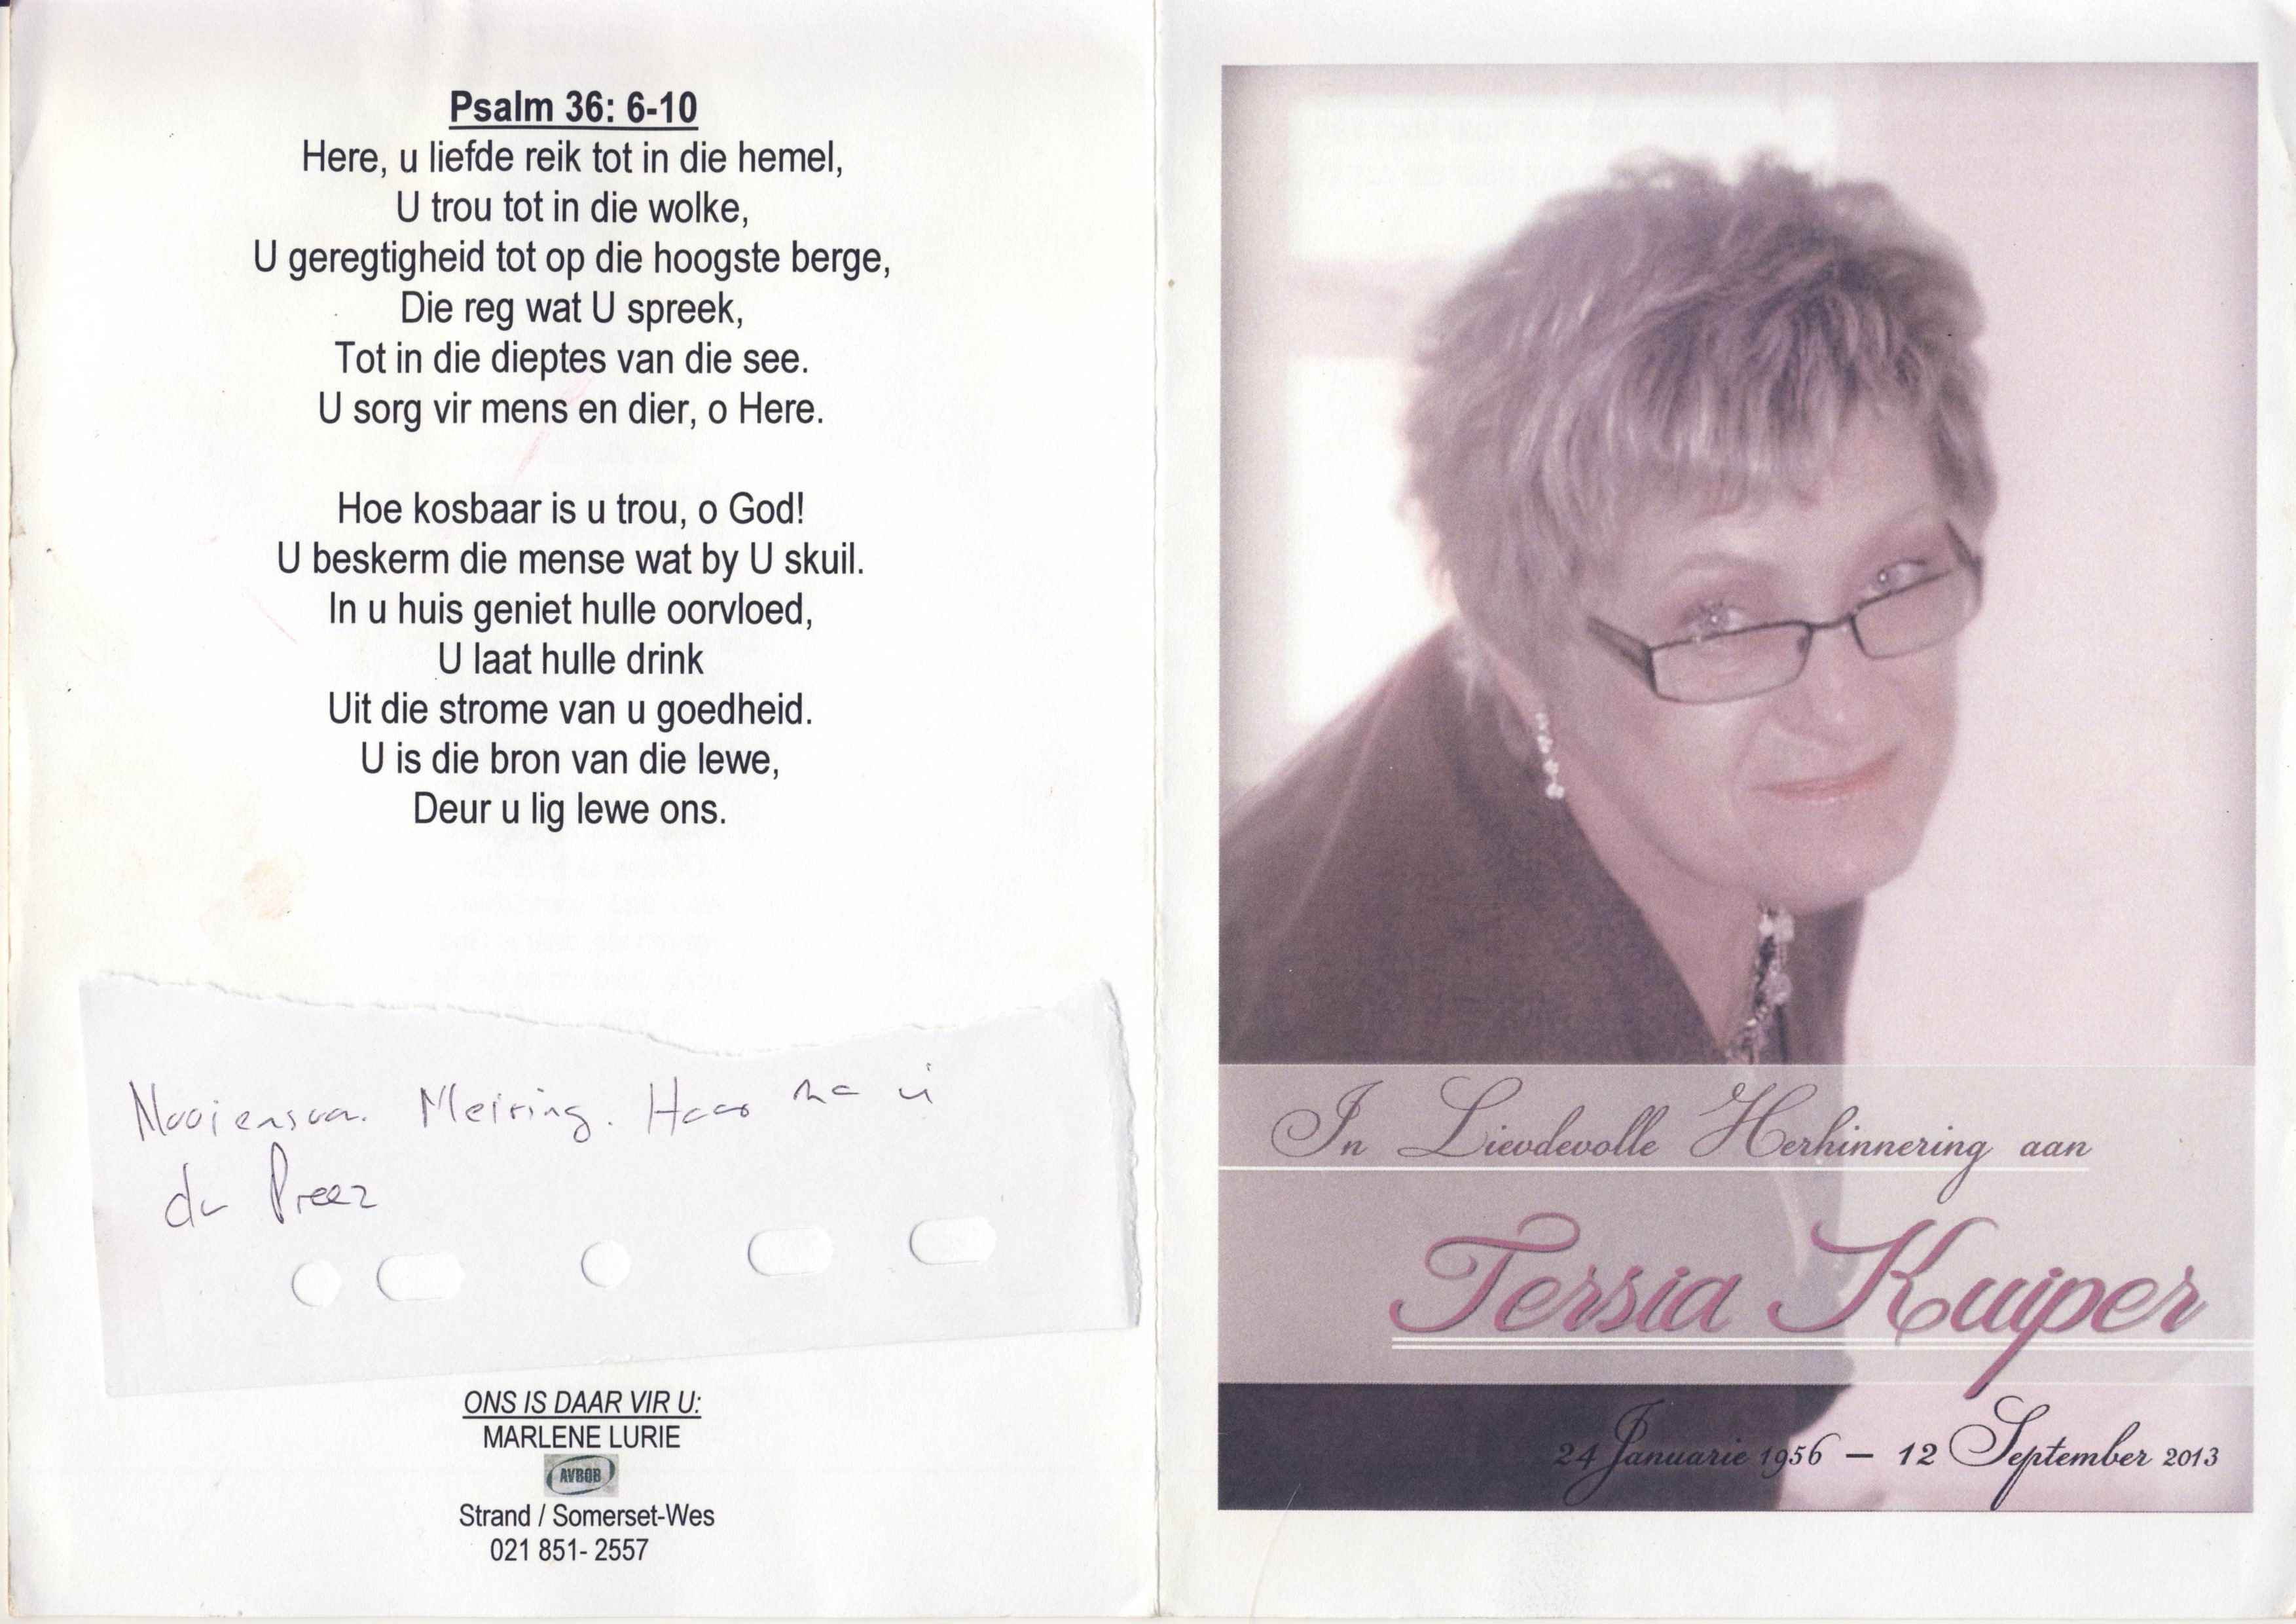 Psalm 36: 6-10
Here, u liefde reik tot in die hemel,
U trou tot in die wolke,
U geregtigheid tot op die hoogste berge,
Die reg wat U spreek,
Tot in die dieptes van die see.
U sorg vir mens en dier, o Here.
Hoe kosbaar is u trou, o God!
U beskerm die mense wat by U skuil.
In u huis geniet hulle oorvloed,
U laat hulle drink
Uit die strome van u goedheid.
U is die bron van die lewe,
Deur u lig lewe ons.
Nooiensvan. Meiring. Haar ma 'n
du Preez
ONS IS DAAR VIR U:
MARLENE LURIE
AVBOB
Strand / Somerset-Wes
021 851- 2557
In Lievdevolle Herhinnering aan
Tersia Kuiper
24 Januarie 1956 – 12 September 2013